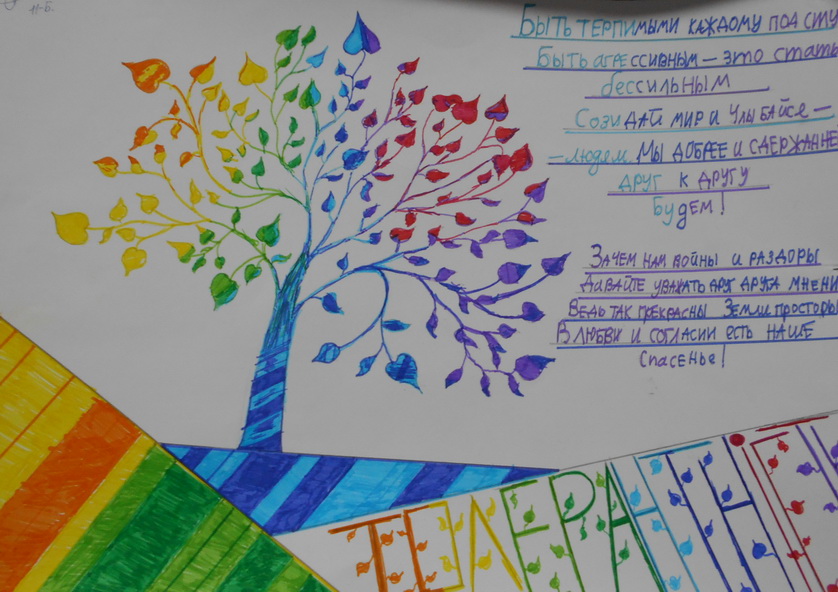 11-Б.
Быть терпимыми каждому под силу
Быть агрессивным — это стать
бессильным
Созидай мир и улыбайся —
— людем. Мы добрее и сдержанне
друг к другу
Будем!
Зачем нам войны и раздоры
Давайте уважать друг друга мнени
Ведь так прекрасны Земли просторы
В любви и согласии есть наше
Спасенье!
ТОЛЕРАНТНОСТ